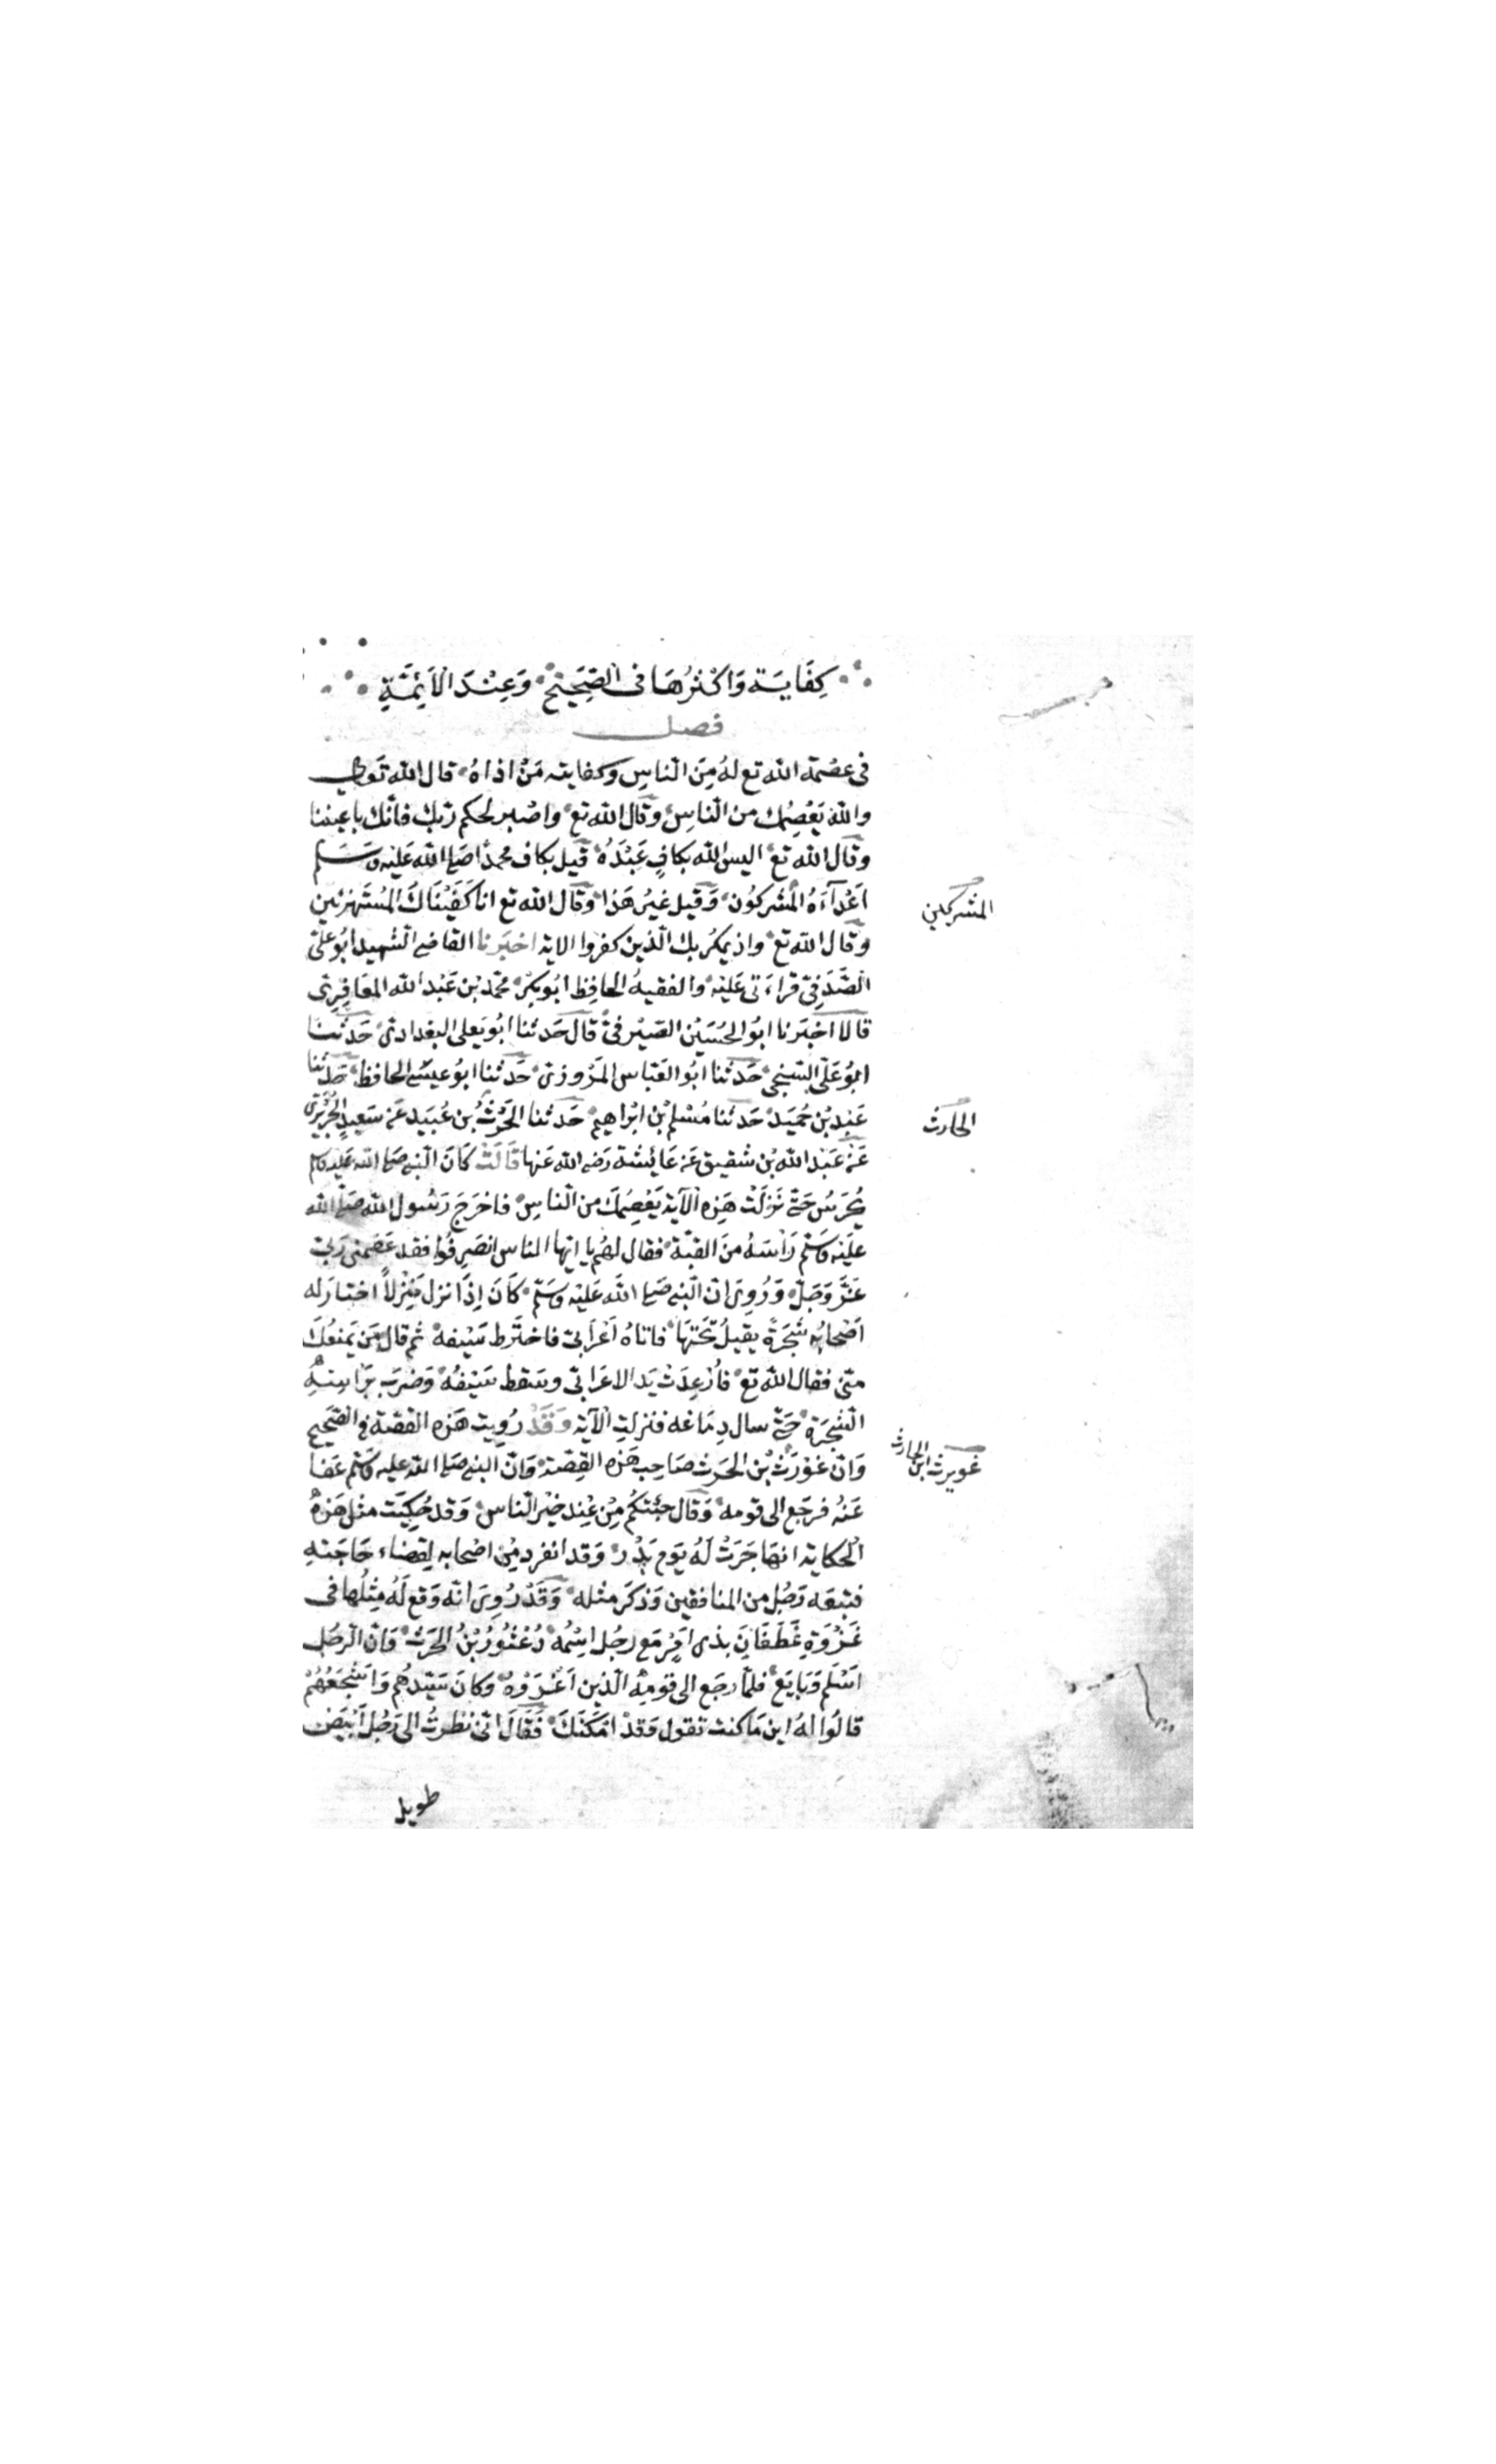 كِفَايَة وَاكْثرُهَا فى الصَّحِيحِ وَعِنْدَ الاَئِمَّةِ
فصل
فى عصْمة الله تع لهُ مِنَ الناسِ وكفايته مَنْ اذاهُ قال الله تَعالى
والله يَعْصِمُك من الناسِ وقال الله تع واصْبر لحكم ربّك فانّك باعيننا
وقال الله تع اليس الله بكافٍ عَبْدَهُ قيل بكاف محمدًا صلى الله عَليْه وَسَلم
اَعْدآءَهُ المشركُون وَقيل غيرُ هَذا وقال الله تع انا كَفَيْنَاكَ المُسْتَهزئين
المشركين
وقال الله تع واذ يمكر بك الّذين كفروا الاية اخبَرنا القاضى الشهيد ابُو علىّ
الصَّدَفىّ قراءَتى عَليْه والفقيهُ الحافِظ ابُو بكرٍ محمّد بن عَبْد الله المعَافِرىّ
قالا اخبَرنا ابوُ الحُسَيْن الصّيْرفىّ قال حَدثنا ابُو يَعلى البغدادىّ حَدثنَا
ابوُ عَلىّ السّنجى حَدثنا ابُو العَبّاس المَرْوزىّ حَدثنا ابُو عيسى الحافظ حَدثنا
عَبْد بْن حُمَيدٍ حَدثنا مُسْلم بْن ابْراهيم حَدثنا الحَرْثُ بُن عُبَيد عَن سَعِيدٍ الجُرَيْرىّ
الحارث
عَنْ عَبْد الله بْن شقيق عَن عَائِشة رَضى الله عَنها قَالَتْ كَانَ النّبى صلى الله عَليه وسلم
يُحْرَسُ حَتّى نَزلَتْ هَذِه الآية يَعْصِمُكَ من الناسِ فاخرَجَ رَسُول الله صَلى الله
عليْه وَسَلم رَاْسَهُ منَ القبّة فقال لهُم يا ايّها الناس انصَرِفُوا فقد عَصَمنى رَبّى
عَزَّ وَجَلّ وَرُوِىَ انّ النّبى صَلى الله عَليْه وسَلّم كَانَ اِذَا نزلَ مَنْزلاً اختارَ له
اَصْحابُه شجَرَةً يقيلُ تحْتَهَا فاتاهُ اَعْرَابىّ فاخترَط سَيْفهُ ثم قال مَن يَمنعُكَ
منّى فقال الله تع فاُرْعِدَتْ يَد الاعْرَابىّ وسَقط سَيْفُهُ وَضَرَبَ برَاسِهِ
الشجَرَة حَتّى سال دِمَاغه فنزلتِ الآية وَقَدْ رُوِيت هَذِه القصّة فى الصّحيح
وَانّ غوْرَثَ بْن الحَرث صَاحِب هَذِه القِصّة وَانّ النبى صَلى الله عليه وَسَلم عَفا
غويرث ابن الحارث
عَنْهُ فرجَع الى قومه وَقال جئتكُم مِنْ عِنْد خيْر الناس وَقد حُكِيَت مثل هَذِه
الحكاية انهَا جَرَتْ لَهُ يَوم بَدْرٍ وَقد انفرد مِنْ اصْحابه لِقضاء حَاجَتهِ
فتبعَه رَجُل من المنافقين وَذكَرَ مثله وَقَدْ رُوِىَ انّه وَقع لَهُ مِثلُها فى
غَزْوَةِ غَطَفَانَ بذى اَمَرٍ مَع رجُل اسْمُهُ دُعْثُورُ بْنُ الحَرث وَانّ الرجُل
اَسْلَم وَبايَع فلمّا رجَع الى قومِهِ الّذين اَغْرَوْهُ وَكانَ سَيّدهُم وَاَشْجَعُهُمْ
قالُوا لهُ اين مَا كنت تقول وَقدْ امكَنَكَ فَقَالَ انّى نظرتُ الى رَجُلٍ اَبْيَض
طويل